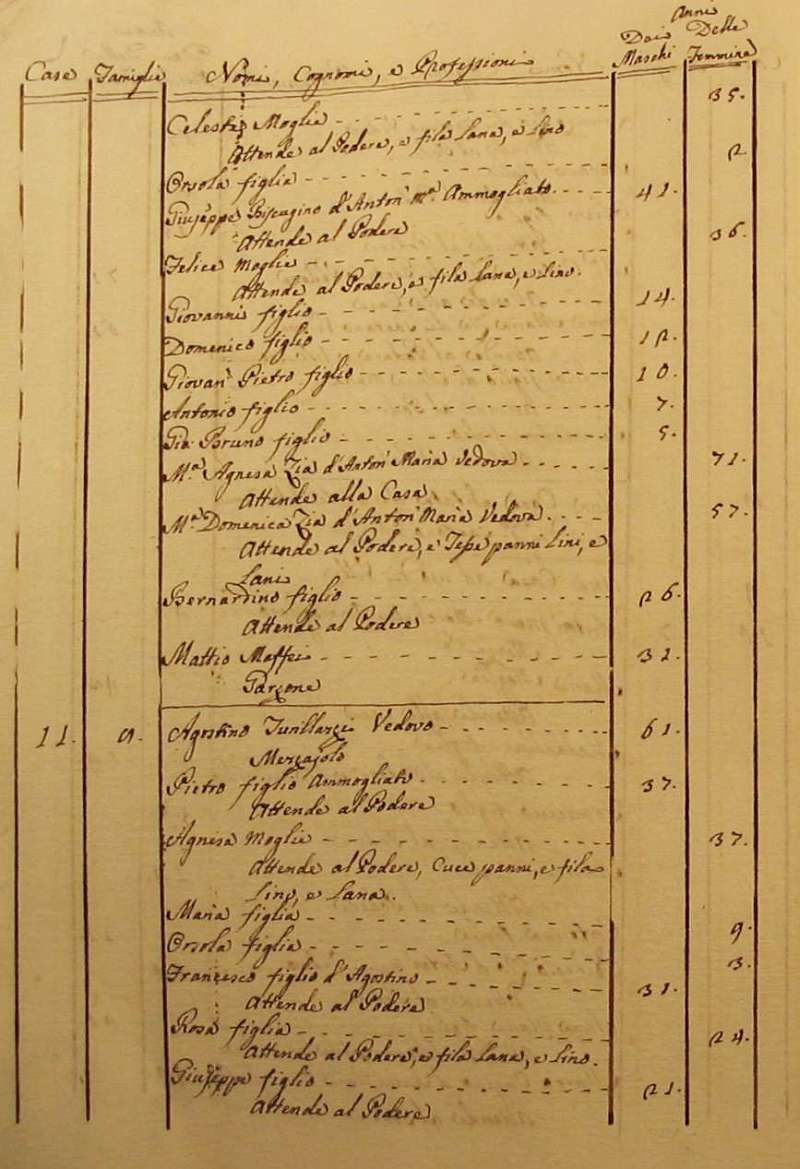 Anni
Dei Delle
Case Famiglie Nomi, Cognomi, e Professioni Maschi Femmine
Celeste Moglie 35.
Attende al Podere, e fila Lana, e Lino
Orsola figlia 2.
Giuseppe d'Anton' M.ª Ammogliato 41.
Attende al Podere
Felice Moglie 36.
Attende al Podere, e fila Lana, e Lino.
Giovanni figlio 14.
Domenico figlio 12.
Giovan' Pietro figlio 10.
Antonio figlio 7.
Gio: Bruno figlio 5.
M.ª Agnesa Zia d'Anton' Maria Vedova 71.
Attende alla Casa
M.ª Domenica Zia d'Anton' Maria Vedova. 57.
Attende al Podere, e Tesse panni Lini, e
Lani
Bernardino figlio 26.
Attende al Podere
Mattio Maffei 32.
Garzone
11. 9. Agostino Vedovo 61.
Pietro figlio Ammogliato 37.
Attende al Podere
Agnesa Moglie 37.
Attende al Podere, Cuce panni, e fila
Lino, e Lana.
Maria figlia 9.
Orsola figlia 3.
Francesco figlio d'Agostino 31.
Attende al Podere
Rosa figlia 24.
Attende al Podere, e fila Lana, e Lino.
Giuseppe figlio 21.
Attende al Podere